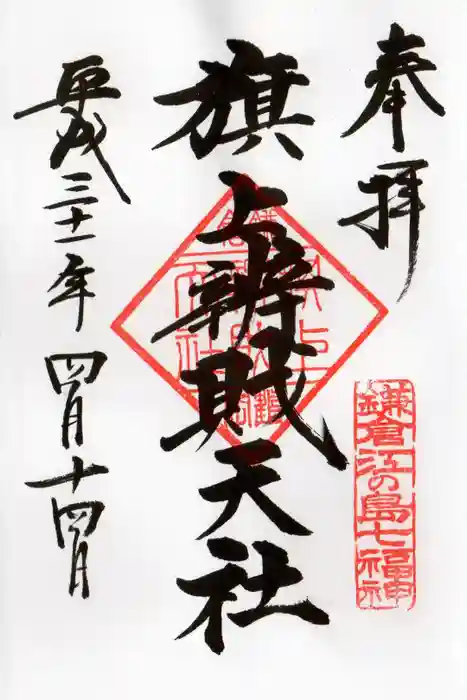 奉拝
鎌倉江の島七福神
旗上辨財天社
平成三十一年四月十四日